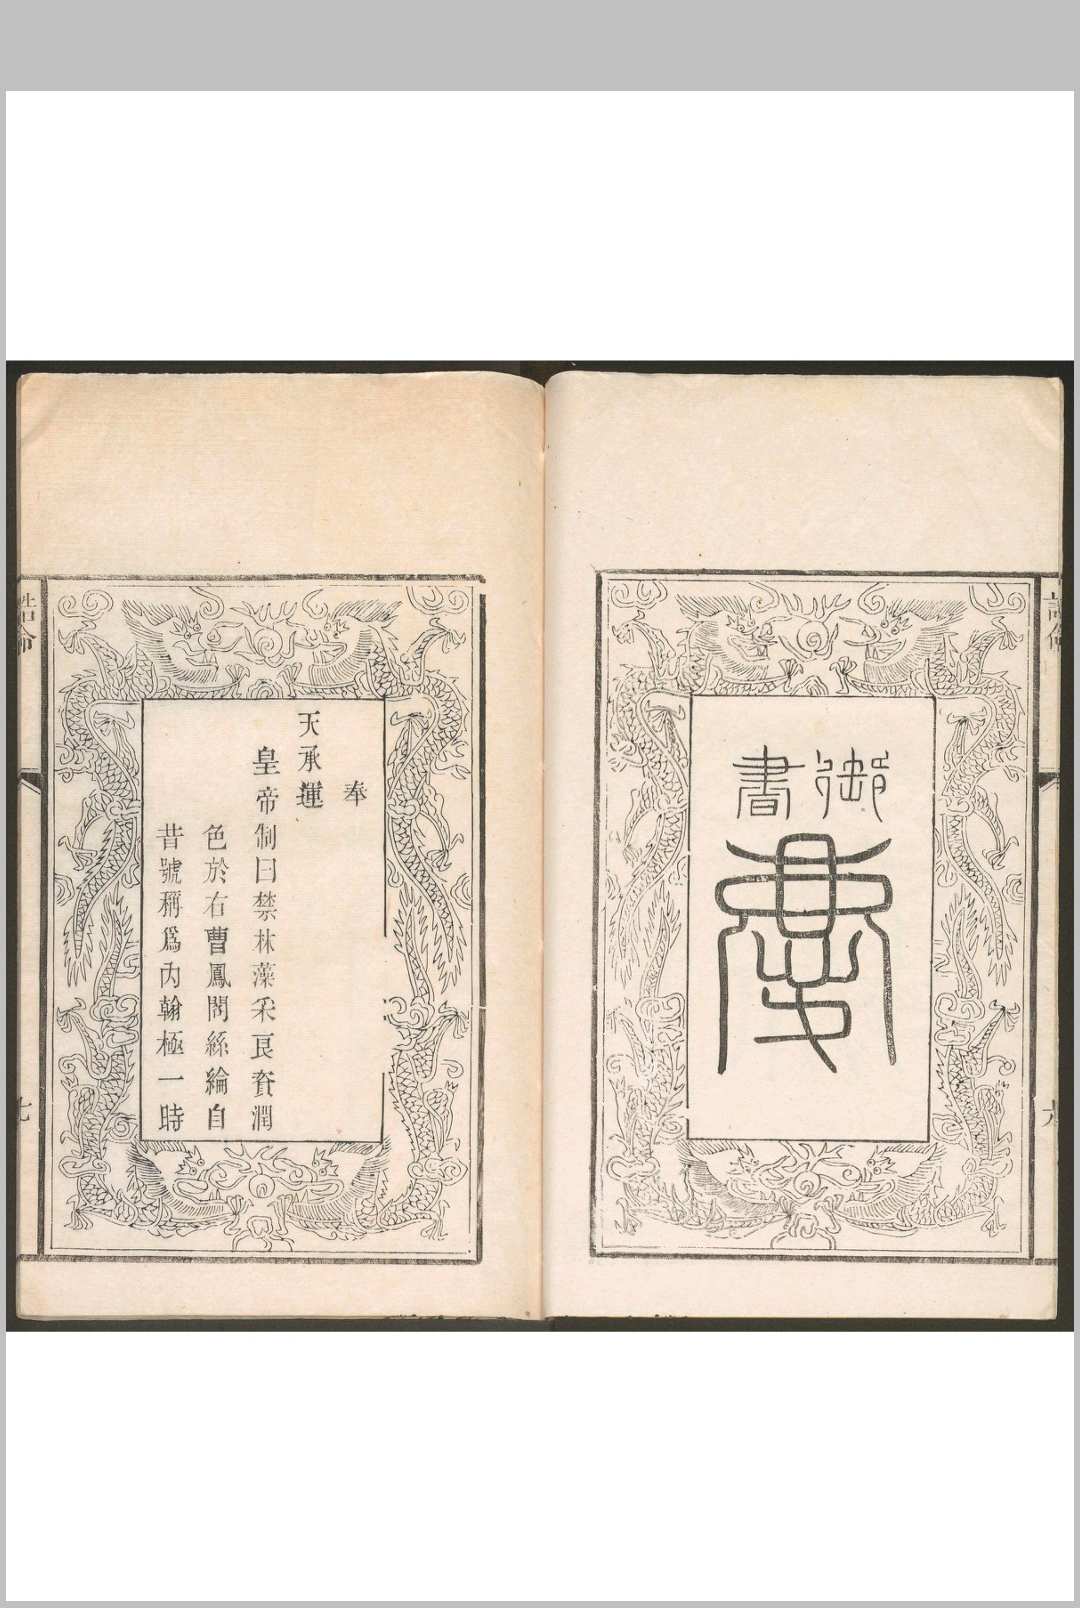 御書
誥命
六
奉
天承運
皇帝制曰禁林藻采良資潤
色於右曹鳳閣絲綸自
昔號稱爲內翰極一時
誥命
七